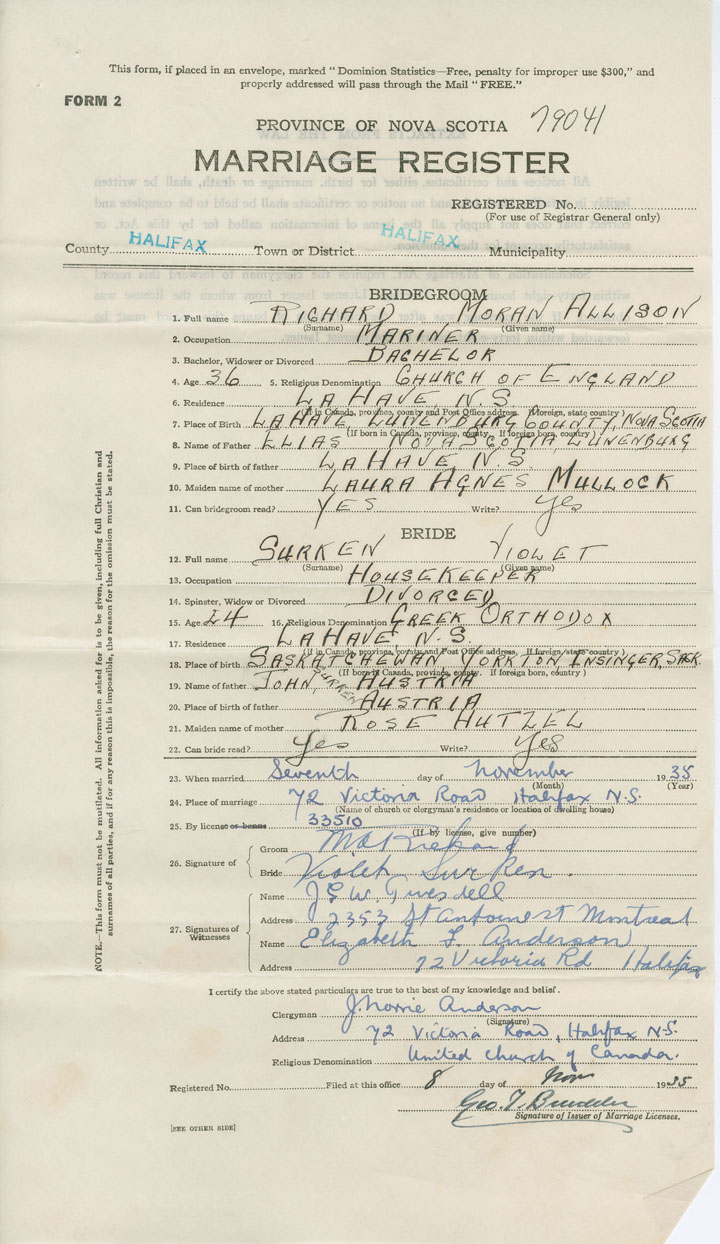 This form, if placed in an envelope, marked " Dominion Statistics—Free, penalty for improper use $300," and
properly addressed will pass through the Mail " FREE."
FORM 2
PROVINCE OF NOVA SCOTIA 79041
MARRIAGE REGISTER
REGISTERED No.
(For use of Registrar General only)
County HALIFAX Town or District HALIFAX Municipality
BRIDEGROOM
1. Full name RICHARD MORAN ALLISON
(Surname) (Given name)
2. Occupation MARINER
3. Bachelor, Widower or Divorced BACHELOR
4. Age 36 5. Religious Denomination CHURCH OF ENGLAND
6. Residence LA HAVE, N.S.
(If in Canada, province, county and Post Office address. If foreign, state country)
7. Place of Birth LAHAVE LUNENBURG COUNTY, NOVA SCOTIA
(If born in Canada, province, county. If foreign born, country)
8. Name of Father ELIAS NOVA SCOTIA, LUNENBURG
9. Place of birth of father LA HAVE, N.S.
10. Maiden name of mother LAURA AGNES MULLOCK
11. Can bridegroom read? YES Write? Yes
BRIDE
12. Full name SURKEN VIOLET
(Surname) (Given name)
13. Occupation HOUSEKEEPER
14. Spinster, Widow or Divorced DIVORCED
15. Age 24 16. Religious Denomination GREEK ORTHODOX
17. Residence LAHAVE N.S.
(If in Canada, province, county and Post Office address. If foreign, state country)
18. Place of birth SASKATCHEWAN YORKTON INSINGER, SASK.
(If born in Canada, province, county. If foreign born, country)
19. Name of father JOHN, SURKEN AUSTRIA
20. Place of birth of father AUSTRIA
21. Maiden name of mother ROSE HUTZEL
22. Can bride read? Yes Write? Yes
23. When married Seventh day of November 1935
(Month) (Year)
24. Place of marriage 72 Victoria Road Halifax N.S.
(Name of church or clergyman's residence or location of dwelling house)
25. By license or banns 33510
(If by license, give number)
26. Signature of
Groom
Bride Violet Surken.
27. Signatures of Witnesses
Name J E W
Address 2353 St Antoine st Montreal
Name Elizabeth F. Anderson
Address 72 Victoria Rd Halifax
I certify the above stated particulars are true to the best of my knowledge and belief.
Clergyman J. Norrie Anderson
(Signature)
Address 72 Victoria Road, Halifax N.S.
Religious Denomination United Church of Canada.
Registered No. Filed at this office 8 day of Nov 1935
Geo. T.
Signature of Issuer of Marriage Licenses.
[SEE OTHER SIDE]
NOTE.—This form must not be mutilated. All information asked for is to be given, including full Christian and
surnames of all parties, and if for any reason this is impossible, the reason for the omission must be stated.